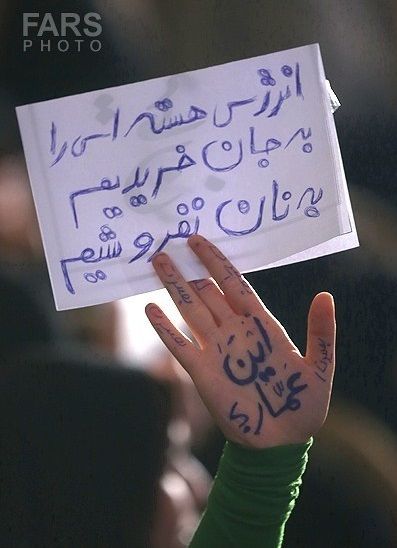 FARS
PHOTO
انرژی هسته ای را
به جان خریدیم
به نان نفروشیم
اَینَ
عَمّار
بصیرت